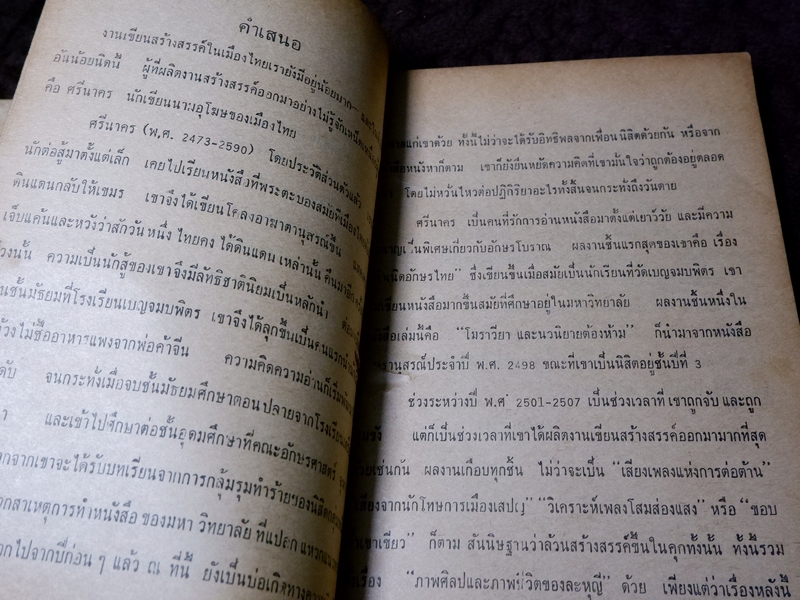 คำเสนอ
งานเขียนสร้างสรรค์ในเมืองไทยเรายังมีอยู่น้อยมาก
อันน้อยนิดนี้ ผู้ที่ผลิตงานสร้างสรรค์ออกมาอย่างไม่รู้จัก
คือ ศรีนาคร นักเขียนนามอุโฆษของเมืองไทย
ศรีนาคร (พ.ศ. 2473-2590) โดยประวัติส่วนตัวแล้ว
นักต่อสู้มาตั้งแต่เล็ก เคยไปเรียนหนังสือที่พระตะบองสมัยที่เมืองไทย
ดินแดนกลับให้เขมร เขาจึงได้เขียนโคลงอาฆาตานุสรณ์ขึ้น
เจ็บแค้นและหวังว่าสักวันหนึ่ง ไทยคง ได้ดินแดน เหล่านั้น คืนมาอีก
นั้น ความเป็นนักสู้ของเขาจึงมีลัทธิชาตินิยมเป็นหลักนำ
ชั้นมัธยมที่โรงเรียนเบญจมบพิตร เขาจึงได้ลุกขึ้นเป็นคนแรก
ไม่ซื้ออาหารแพงจากพ่อค้าจีน ความคิดความอ่านก็เริ่ม
จนกระทั่งเมื่อจบชั้นมัธยมศึกษาตอนปลายจากโรงเรียน
และเข้าไปศึกษาต่อชั้นอุดมศึกษาที่คณะอักษรศาสตร์
จากเขาจะได้รับบทเรียนจากการกลุ้มรุมทำร้ายของนิสิต
สาเหตุการทำหนังสือ ของมหา วิทยาลัย ที่แปลก แหวก
ไปจากปีก่อน ๆ แล้ว ณ ที่นี้ ยังเป็นบ่อเกิดทาง
แก่เขาด้วย ทั้งนี้ไม่ว่าจะได้รับอิทธิพลจากเพื่อนนิสิตด้วยกัน หรือจาก
หนังหาก็ตาม เขาก็ยังยืนหยัดความคิดที่เขามั่นใจว่าถูกต้องอยู่ตลอด
โดยไม่หวั่นไหวต่อปฏิกิริยาอะไรทั้งสิ้นจนกระทั่งถึงวันตาย
ศรีนาคร เป็นคนที่รักการอ่านหนังสือมาตั้งแต่เยาว์วัย และมีความ
เป็นพิเศษเกี่ยวกับอักษรโบราณ ผลงานชิ้นแรกสุดของเขาคือ เรื่อง
อักษรไทย” ซึ่งเขียนขึ้นเมื่อสมัยเป็นนักเรียนที่วัดเบญจมบพิตร เขา
เขียนหนังสือมากขึ้นสมัยที่ศึกษาอยู่ในมหาวิทยาลัย ผลงานชิ้นหนึ่งใน
เล่มนี้คือ “โมราวียา และนวนิยายต้องห้าม” ก็นำมาจากหนังสือ
ประจำปี พ.ศ. 2498 ขณะที่เขาเป็นนิสิตอยู่ชั้นปีที่ 3
ช่วงระหว่างปี พ.ศ. 2501-2507 เป็นช่วงเวลาที่ เขาถูกจับ และถูก
ขัง แต่ก็เป็นช่วงเวลาที่เขาได้ผลิตงานเขียนสร้างสรรค์ออกมามากที่สุด
เช่นกัน ผลงานเกือบทุกชิ้น ไม่ว่าจะเป็น “เสียงเพลงแห่งการต่อต้าน”
จากนักโทษการเมืองสเปญ” “วิเคราะห์เพลงโสมส่องแสง” หรือ “ชอบ
เขาเขียว” ก็ตาม สันนิษฐานว่าล้วนสร้างสรรค์ขึ้นในคุกทั้งนั้น ทั้งนี้รวม
เรื่อง “ภาพศิลปและภาพชีวิตของละหุญี” ด้วย เพียงแต่ว่าเรื่องหลังนี้